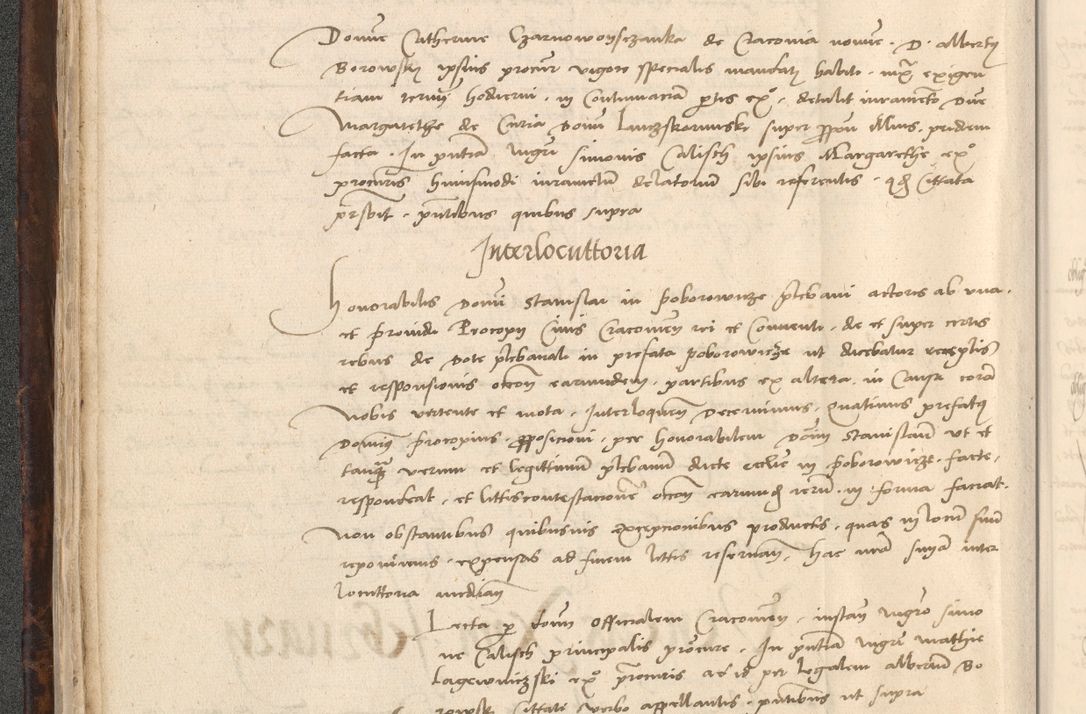 Domine Catherine Czarnowoysczanka de Cracovia nomine D. Alberti
Borowski ipsius procur vigore specialis mandati habiti. iux exigen
tiam termi hodierni. in Contumaciam ptis exo. detulit iuramento Dne
Margarethe de Curia Domi super illius. pridem
facta. In pntia Mgri Simonis Calisch ipsius Margarethe exo
procuris huiusmodi iuramctum delatorum sibi referentis. qd Cittata
prsbit. pntibus quibus supra
Interlocuttoria
Honorabilis Domi Stanislai in Poborowicze plebani actoris ab una.
et providi Procopy Civis Cracovien rei et Conventi. de et super certis
rebus de dote plebanali in prefata Poborowicze ut dicebatur receptis
et responsionis occon earumdem. partibus ex altera. in Causa coram
Nobis vertente et mota. Interloquen Decernimus. Quatinus prefatus
Dominus Procopius. propositioni. per honorabilem Dnm Stanislaum ut et
tanquam verum et legittimum plebanum dicte ecclie in Poborowicze. facte.
respondeat. et littiscontestacione occon earumd rerum. in forma faciat.
Non obstantibus quibusvis exceptionibus productis. quas in locum suum
reponimus. expensas ad finem littis reservan. hac nra suma inter
locuttoria median
Lecta p domi Officialem Cracovien. instan Mgro Simo
ne Calisch principalis procure. In pntia Mgri Mathie
Lagewniczski exo procuris ac id per legalem Albertum Bo
rowsk Cittati verbo appellantis. pntibus ut supra